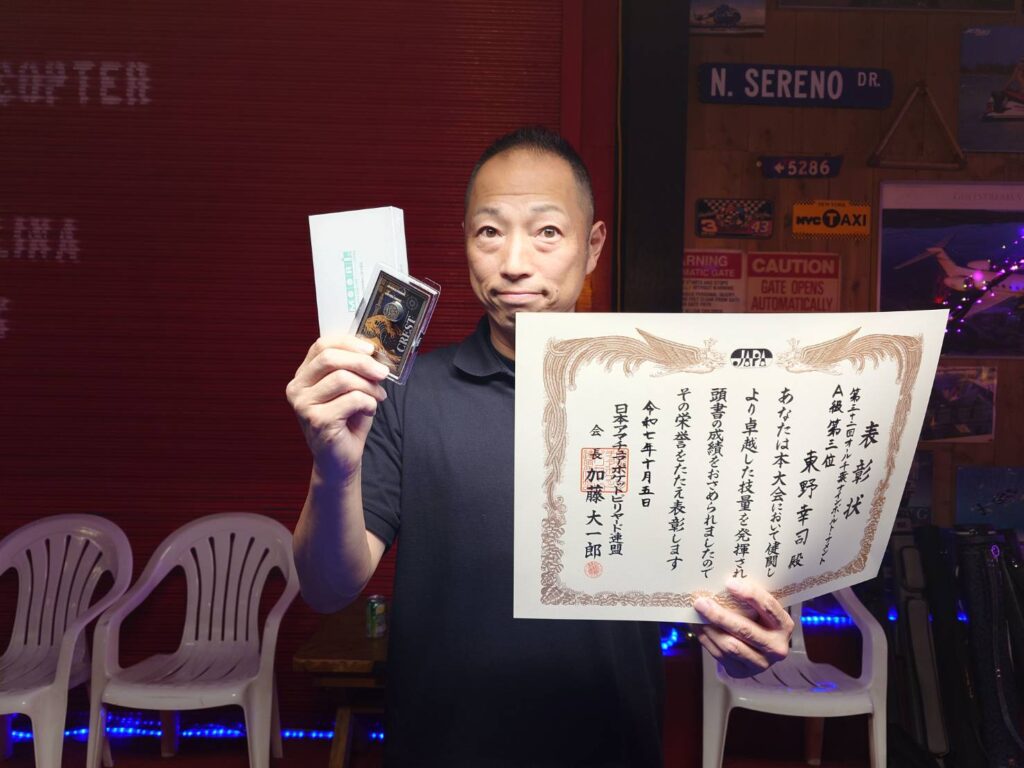 COPTER
LINA
N. SERENO DR.
←5286
3
43
NEW YORK
NYC TAXI
WARNING
MATIC GATE
CAUTION
GATE OPENS
AUTOMATICALLY
GULFSTREAM V
CREST
JAPA
表彰状
第三十一回オール千葉ナインボールトーナメント
A級第三位
東野幸司殿
あなたは本大会において健闘し
より卓越した技量を発揮され
頭書の成績をおさめられましたので
その栄誉をたたえ表彰します
令和七年十月五日
日本アマチュアポケットビリヤード連盟
会長 加藤大一郎